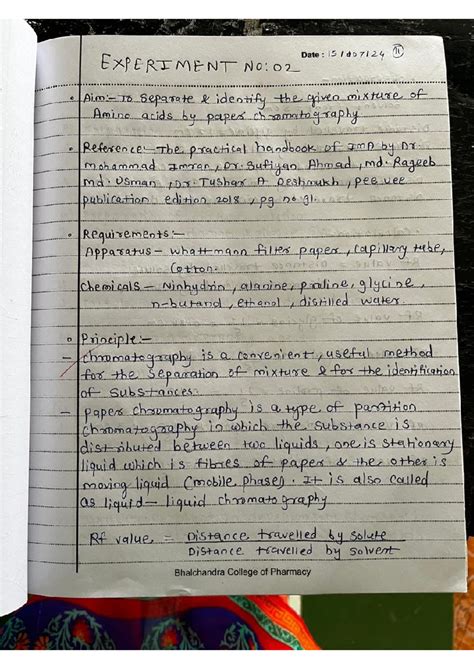 Date: 15/09/24 11
EXPERIMENT NO: 02
Aim:- To separate & identify the given mixture of
Amino acids by paper chromatography
Reference:- The practical handbook of IMA by Dr
Mohammad Imran, Dr. Sufiyan Ahmad, Md. Rageeb
Md. Usman, Dr. Tushar A Deshmukh, Pee Vee
publication edition 2018, pg no 31.
Requirements:-
Apparatus- Whattmann filter paper, Capillary tube,
Cotton.
Chemicals- Ninhydrin, alanine, proline, glycine,
n-butanol, ethanol, distilled water.
Principle:-
- Chromatography is a convenient, useful method
for the separation of mixture & for the identification
of substances.
- paper chromatography is a type of partition
chromatography in which the substance is
distributed between two liquids, one is stationary
liquid which is fibres of paper & the other is
moving liquid (mobile phase). It is also called
as liquid- liquid chromatography
Rf value = Distance travelled by solute
Distance travelled by solvent
Bhalchandra College of Pharmacy